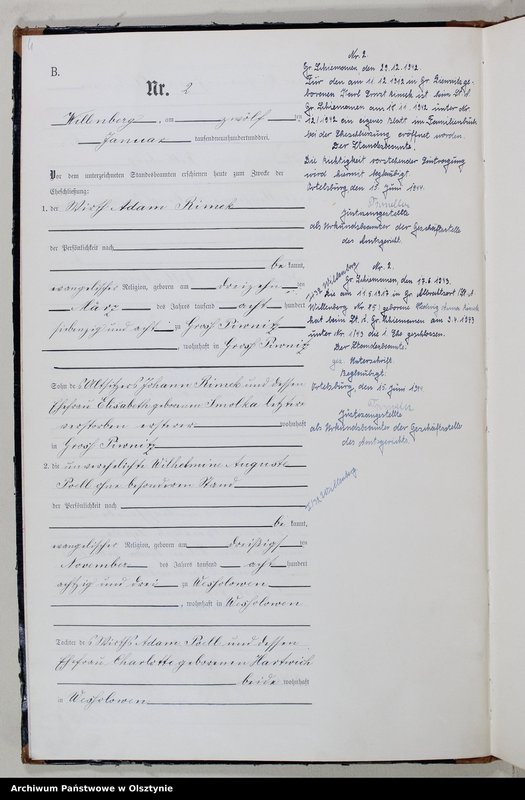 B.
Nr. 2
Willenberg, am zwölf ten
Januar tausendneunhundertunddrei.
Vor dem unterzeichneten Standesbeamten erschienen heute zum Zwecke der
Eheschließung:
1. der Wirth Adam Kimek
der Persönlichkeit nach
be kannt,
evangelischer Religion, geboren am dreizehnten
März des Jahres tausend acht hundert
siebenzig und acht zu Gross Piwnitz
, wohnhaft in Gross Piwnitz
Sohn des Altsitzers Johann Kimek und dessen
Ehefrau Elisabeth geborenen Smolka letztere
verstorben ersterer wohnhaft
in Gross Piwnitz
2. die unverehelichte Wilhelmine Auguste
Poell ohne besonderen Stand
der Persönlichkeit nach
be kannt,
evangelischer Religion, geboren am dreißigsten
November des Jahres tausend acht hundert
achtzig und drei zu Wessolowen
, wohnhaft in Wessolowen
Tochter des Wirths Adam Poell und dessen
Ehefrau Charlotte geborenen Hartwich
beide wohnhaft
in Wessolowen
Nr. 2.
Gr. Schiemanen, den 29.12.1942.
Für den am 11.12.1912 in Gr.
borenen Karl Ernst Kimek ist beim St. A.
Gr. Schiemanen am
12/1942 ein eigenes Blatt im Familienbuch
bei der Eheschließung eröffnet worden.
Der Standesbeamte.
Die Richtigkeit vorstehender Eintragung
wird hiermit beglaubigt.
Ortelsburg, den 15. Juni 1944.
Justizangestellte
als Urkundsbeamter der Geschäftsstelle
des Amtsgerichts.
Nr. 2.
Gr. Schiemanen, den 17.6.1943.
Die am 11.5.1917 in Gr. (St. A.
Willenberg Nr. geborene Hedwig Anna Kimek
hat beim St. A. Gr. Schiemanen am 3.4.1943
unter Nr. 1/43 die 1. Ehe geschlossen.
Der Standesbeamte.
gez. Unterschrift.
Beglaubigt:
Ortelsburg, den 15. Juni 1944
Justizangestellte
als Urkundsbeamter der Geschäftsstelle
des Amtsgerichts.
Willenberg
Willenberg
Archiwum Państwowe w Olsztynie